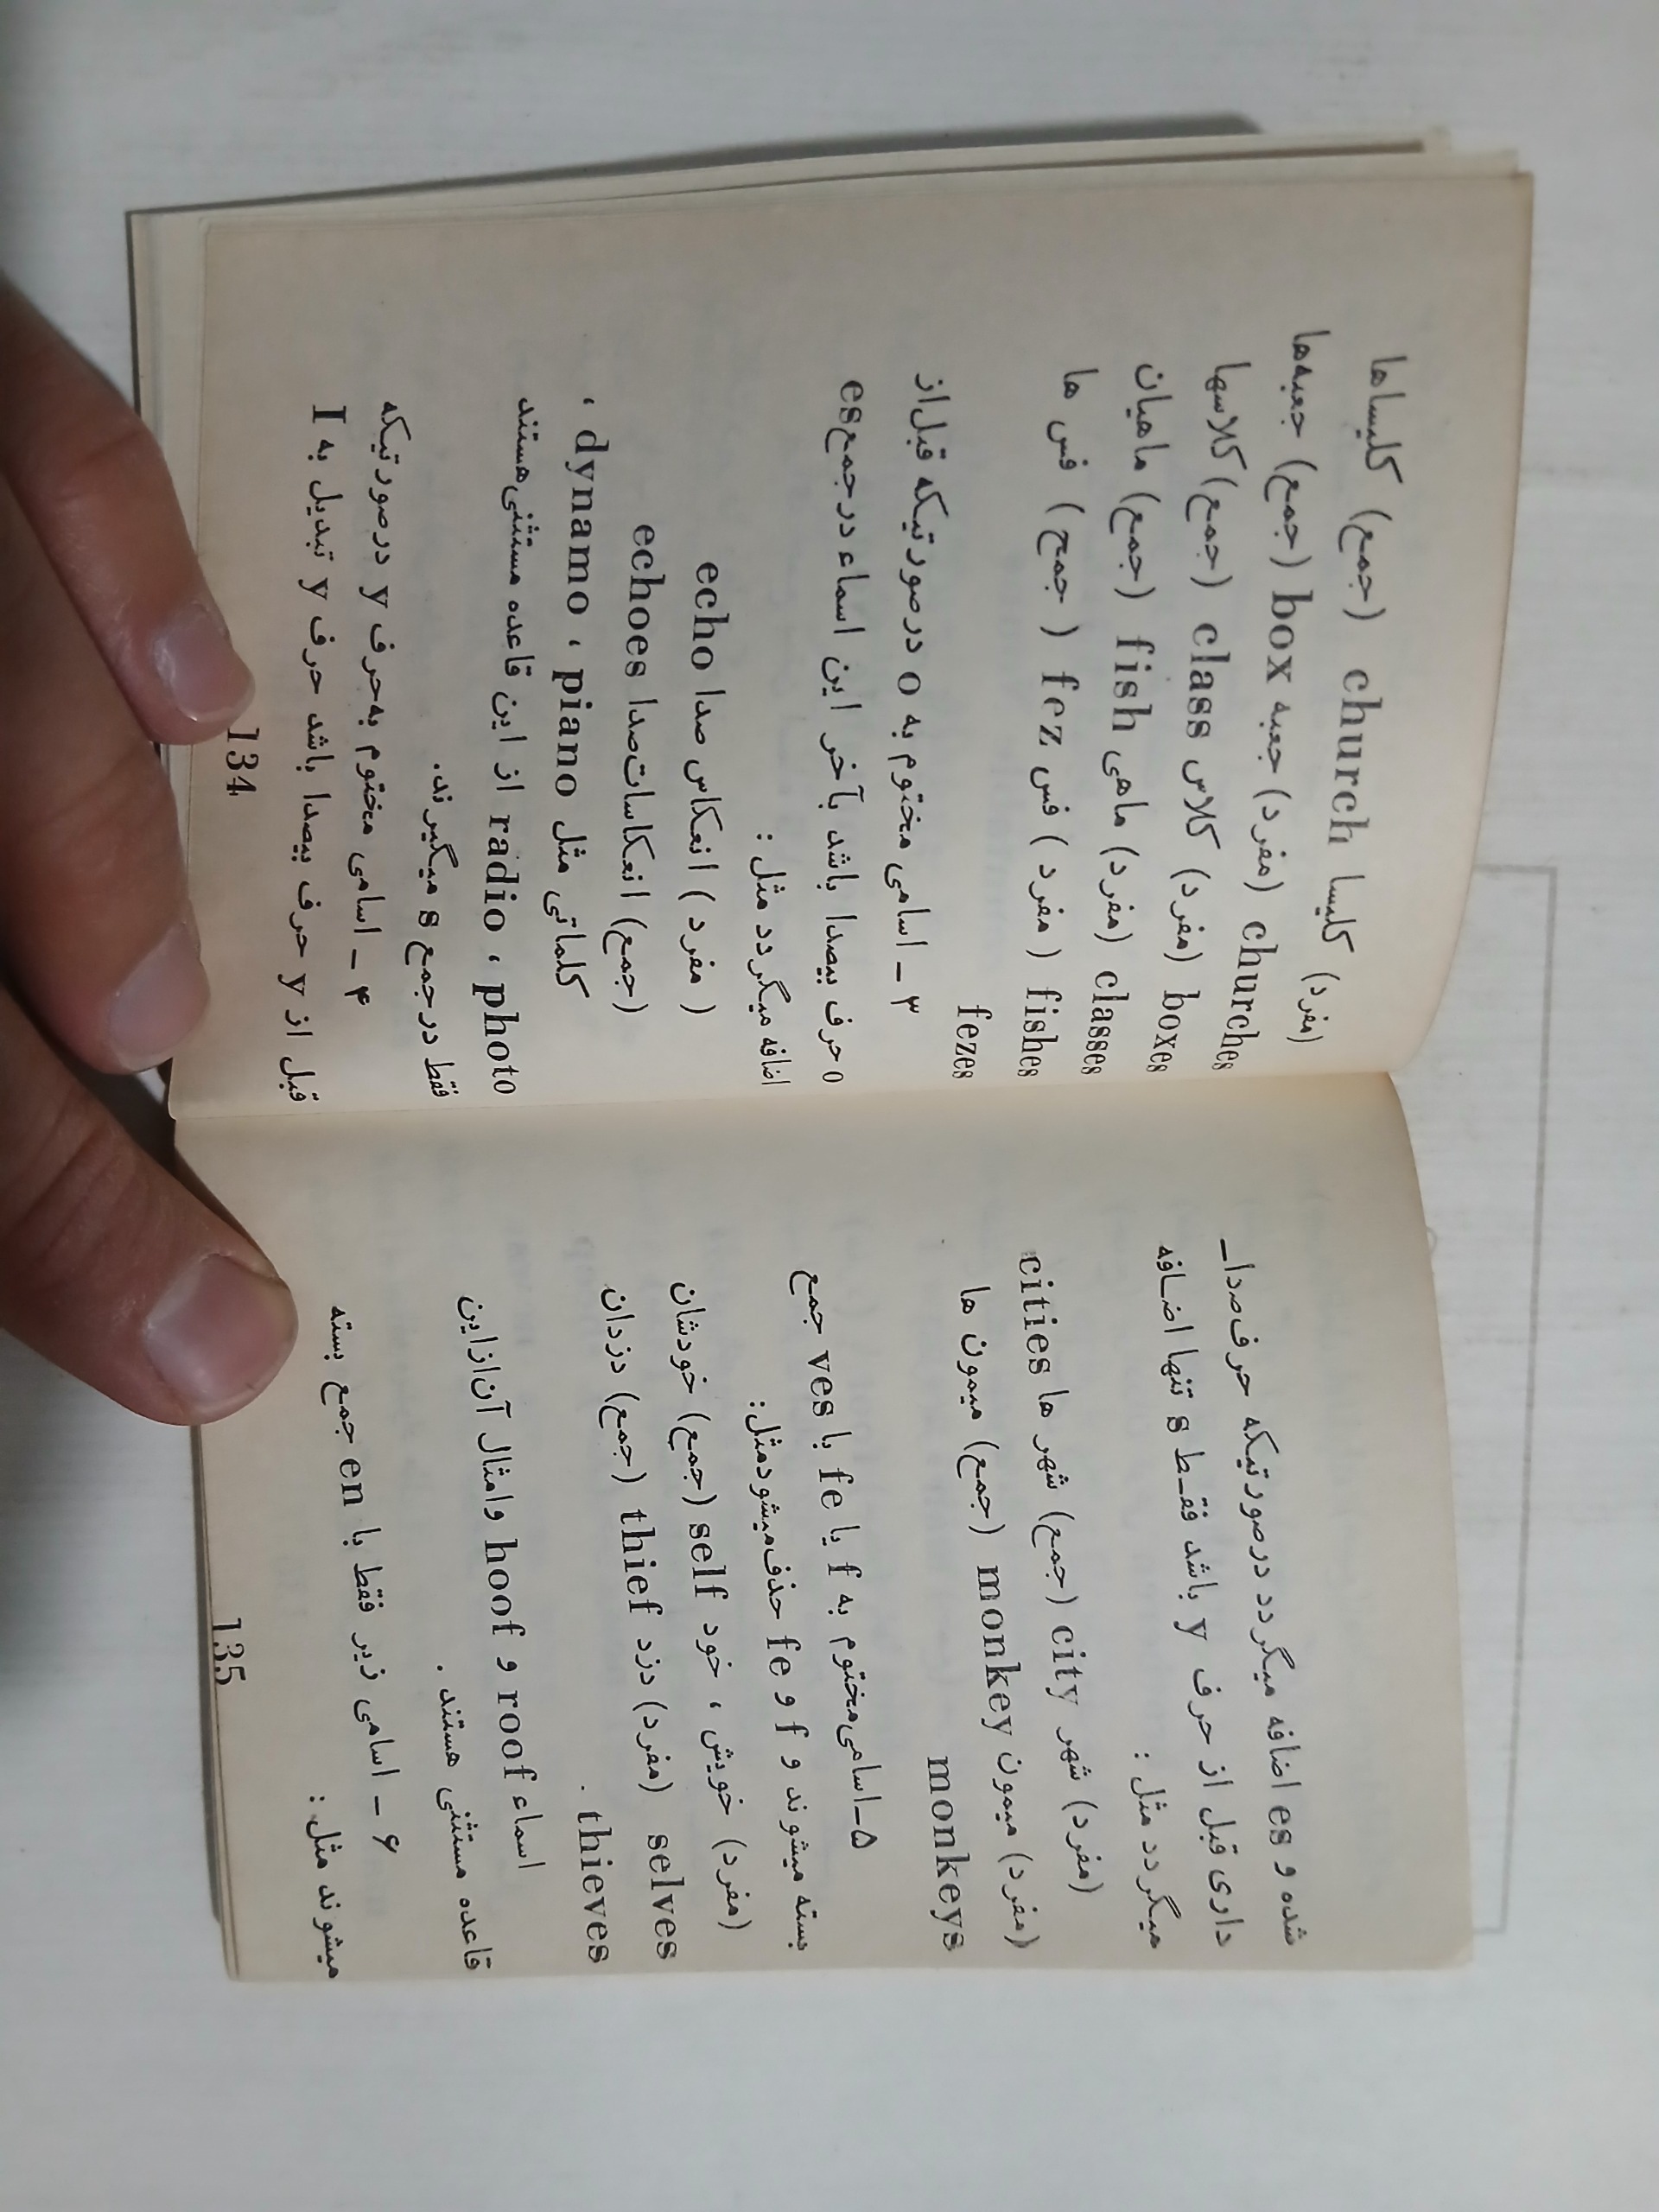 (مفرد) کلیسا church (جمع) کلیساها
churches (مفرد) جعبه box (جمع) جعبه‌ها
boxes (مفرد) کلاس class (جمع) کلاسها
classes (مفرد) ماهی fish (جمع) ماهیان
fishes ( مفرد ) فس fez ( جمع ) فس ها
fezes
۳ ـ اسامی مختوم به o درصورتیکه قبل‌از
o حرف بیصدا باشد بآخر این اسماء درجمع es
اضافه میگردد مثل :
( مفرد ) انعکاس صدا echo
(جمع) انعکاسات‌صدا echoes
کلماتی مثل dynamo ، piano ،
radio ، photo از این قاعده مستثنی‌هستند
فقط درجمع s میگیرند.
۴ ـ اسامی مختوم به‌حرف y درصورتیکه
قبل از y حرف بیصدا باشد حرف y تبدیل به I
134
شده و es اضافه میگردد درصورتیکه حرف‌صداـ
داری قبل از حرف y باشد فقـط s تنها اضـافه
میگردد مثل :
(مفرد) شهر city (جمع) شهر ها cities
(مفرد) میمون monkey (جمع) میمون ها
monkeys
۵ـاسامی‌مختوم به f یا fe با ves جمع
بسته میشوند و f و fe حذف‌میشودمثل:
(مفرد) خویش ، خود self (جمع) خودشان
selves (مفرد) دزد thief (جمع) دزدان
thieves .
اسماء roof و hoof وامثال آن‌ازاین
قاعده مستثنی هستند .
۶ ـ اسامی زیر فقط با en جمع بسته
میشوند مثل :
135